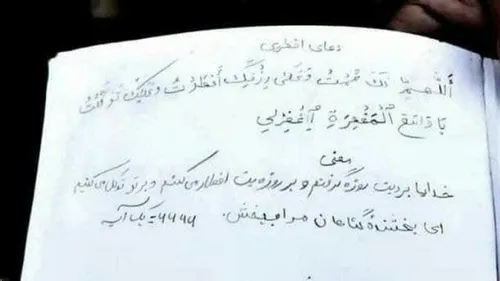 دعای افطری
اَللّهُمَّ لَکَ صُمْتُ وَعَلیٰ رِزْقِکَ أَفْطَرْتُ وَعَلَیْکَ تَوَکَّلْتُ
یَا وَاسِعَ الْمَغْفِرَةِ اِغْفِرْلِي
معنی
خدایا برایت روزه گرفتم و بر روزیت افطار می کنیم و بر تو توکل می کنیم
ای بخشندهٔ گناهان مرا ببخش. ۶۶۶۶ یک آیه